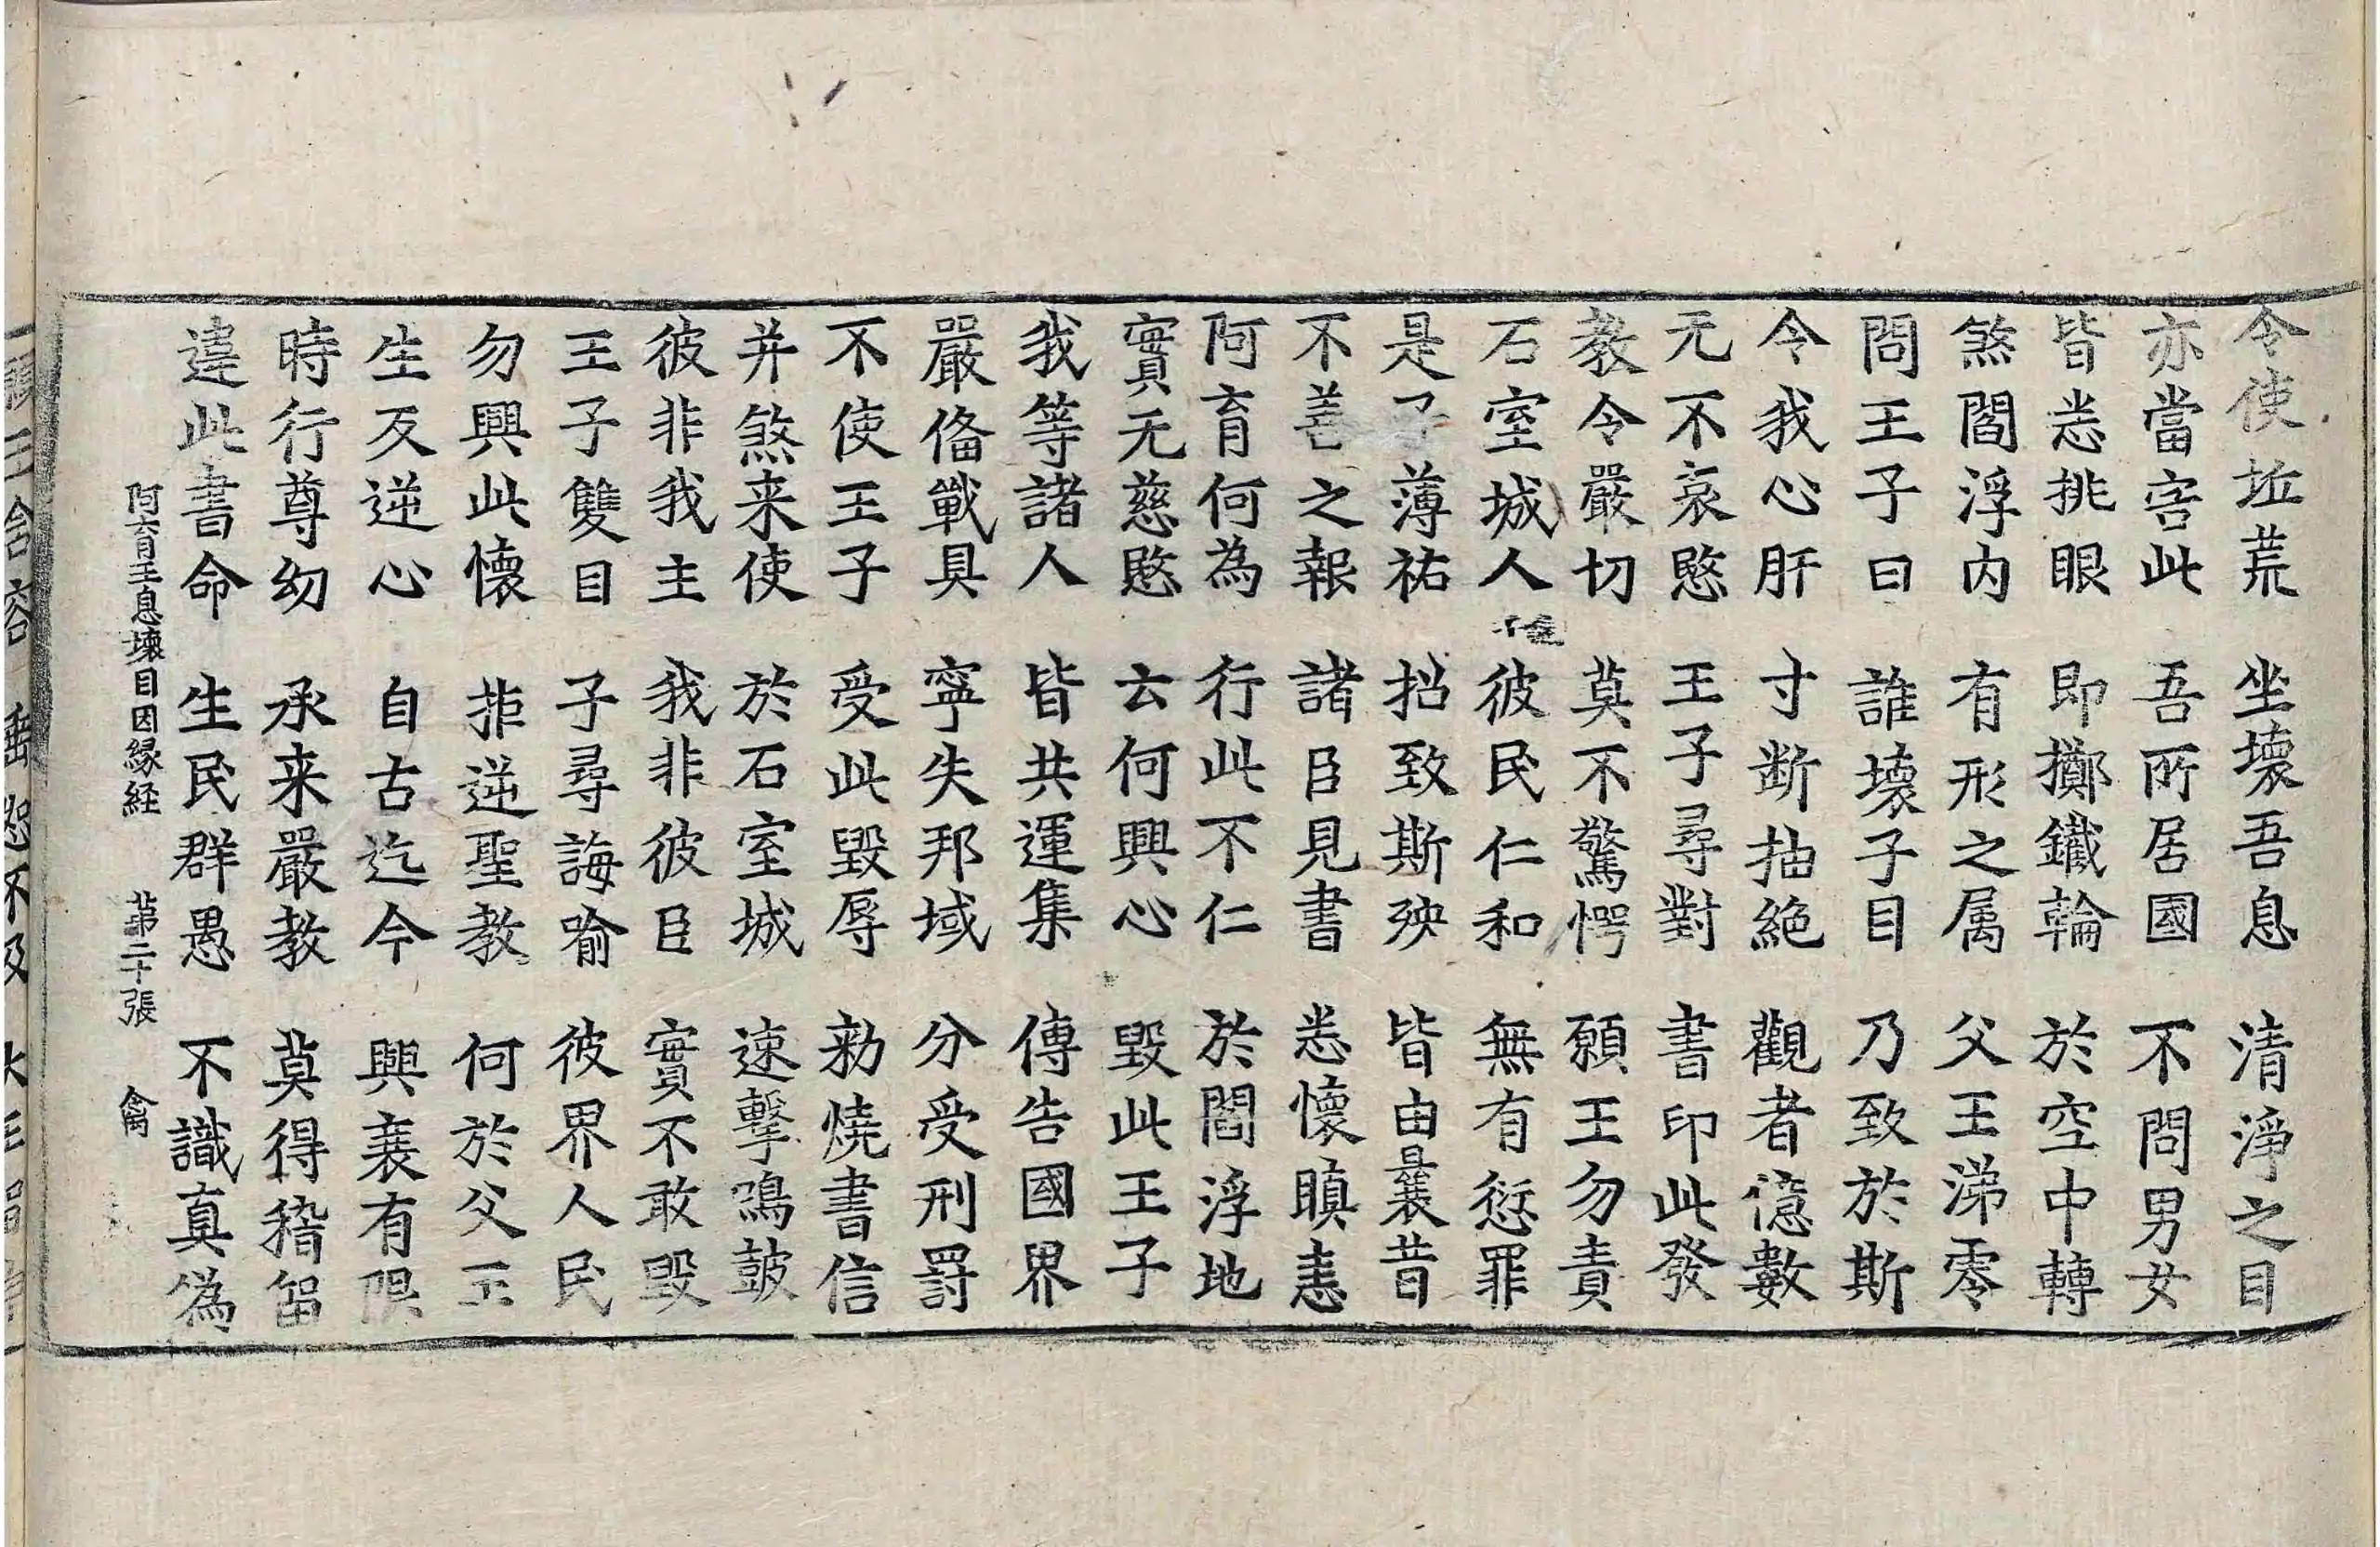 令使坵荒　坐壞吾息　清淨之目
亦當害此　吾所居國　不問男女
皆悉挑眼　即擲鐵輪　於空中轉
煞閻浮內　有形之属　父王涕零
問王子曰　誰壞子目　乃致於斯
令我心肝　寸断抽絶　觀者億數
无不哀愍　王子尋對　書印此發
教令嚴切　莫不驚愕　願王勿責
石室城人　彼民仁和　無有愆罪
是子薄祐　招致斯殃　皆由曩昔
不善之報　諸臣見書　悉懷瞋恚
阿育何為　行此不仁　於閻浮地
實无慈愍　云何興心　毀此王子
我等諸人　皆共運集　傳告國界
嚴俻戰具　寧失邦域　分受刑罰
不使王子　受此毀辱　勑燒書信
并煞来使　於石室城　速擊鳴鼓
彼非我主　我非彼臣　實不敢毀
王子雙目　子尋誨喻　彼界人民
勿興此懷　拒逆聖教　何於父王
生反逆心　自古迄今　興衰有限
時行尊幼　承来嚴教　莫得稽留
違此書命　生民群愚　不識真偽
阿育王息壞目因縁経　第二十張　禽